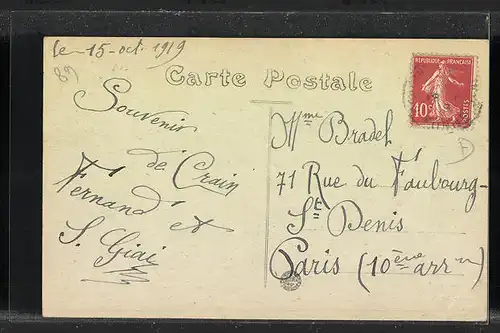 le 15 oct. 1919
89
Carte Postale
Souvenir
de Crain
Fernand et
S. Giai
RÉPUBLIQUE FRANÇAISE
10c
POSTES
Mme Bradel
71 Rue du Faubourg-
St Denis
Paris (10ème arrt)